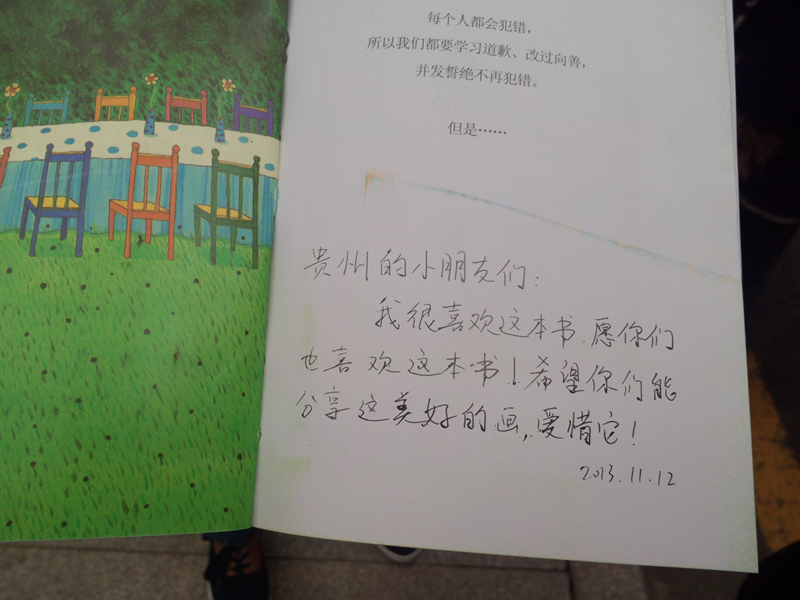 每个人都会犯错，
所以我们都要学习道歉、改过向善，
并发誓绝不再犯错。
但是……
贵州的小朋友们：
我很喜欢这本书，愿你们
也喜欢这本书！希望你们能
分享这美好的画，爱惜它！
2013.11.12